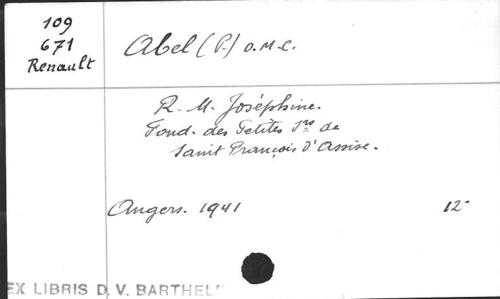 109
671
Renault
Abel (P.) O.M.C.
R. M. Joséphine.
Fond. des Petites Srs de
Sanit François d'Assise.
Angers. 1941
12-
EX LIBRIS D. V. BARTHEL